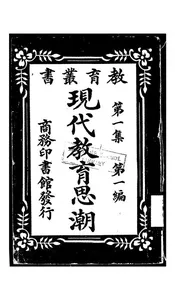 書叢育教
第一集
第一編
現代教育思潮
商務印書館發行